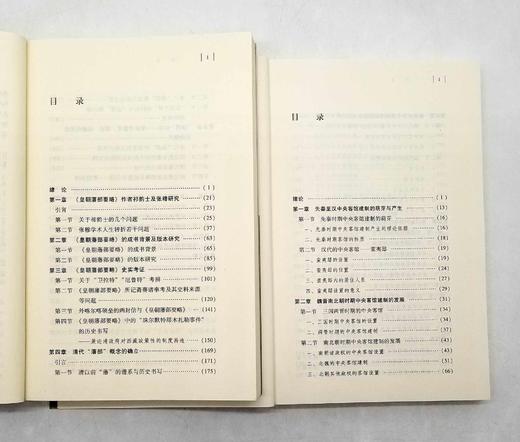 [ 1 ]
目 录
绪 论 (1)
第一章 《皇朝藩部要略》作者祁韵士及张穆研究 (21)
引言 (23)
第一节 关于祁韵士的几个问题 (25)
第二节 张穆学术人生转折若干问题 (37)
第二章 《皇朝藩部要略》的成书背景及版本研究 (63)
第一节 《皇朝藩部要略》的成书背景 (65)
第二节 《皇朝藩部要略》的版本研究 (77)
第三章 《皇朝藩部要略》史实考证 (89)
第一节 关于“卫拉特”“厄鲁特”考辨 (91)
第二节 《皇朝藩部要略》所记
等问题 (99)
第三节 《皇朝藩部要略》 (141)
第四节 《皇朝藩部要略》中的“珠尔默特那木札勒事件”
的历史书写 (150)
第四章 清代“藩部”概念的确立 (169)
引言 (171)
第一节 清以前“藩”的谱系与历史书写 (175)
目 录
绪论 (1)
第一章 先秦至汉中央客馆建制的萌芽与产生 (16)
第一节 先秦时期中央客馆建制的萌芽 (16)
一、先秦时期中央客馆产生的理论依据 (16)
二、先秦时期中央客馆的 (19)
第二节 汉代的中央客馆——蛮夷邸 (22)
一、蛮夷邸的设置 (22)
二、蛮夷邸的位置 (23)
三、蛮夷邸内的居住人员 (26)
四、蛮夷邸设置的意义 (29)
第二章 魏晋南北朝时期中央客馆建制的发展 (31)
第一节 三国两晋时期的中央客馆 (31)
一、三国时期的中央客馆的设置 (31)
二、两晋时期的中央客馆 (37)
第二节 南北朝时期中央客馆建制的发展 (44)
一、南朝诸政权的中央客馆设置 (44)
二、北魏的中央客馆建制 (51)
三、北朝其他政权的客馆设置 (66)